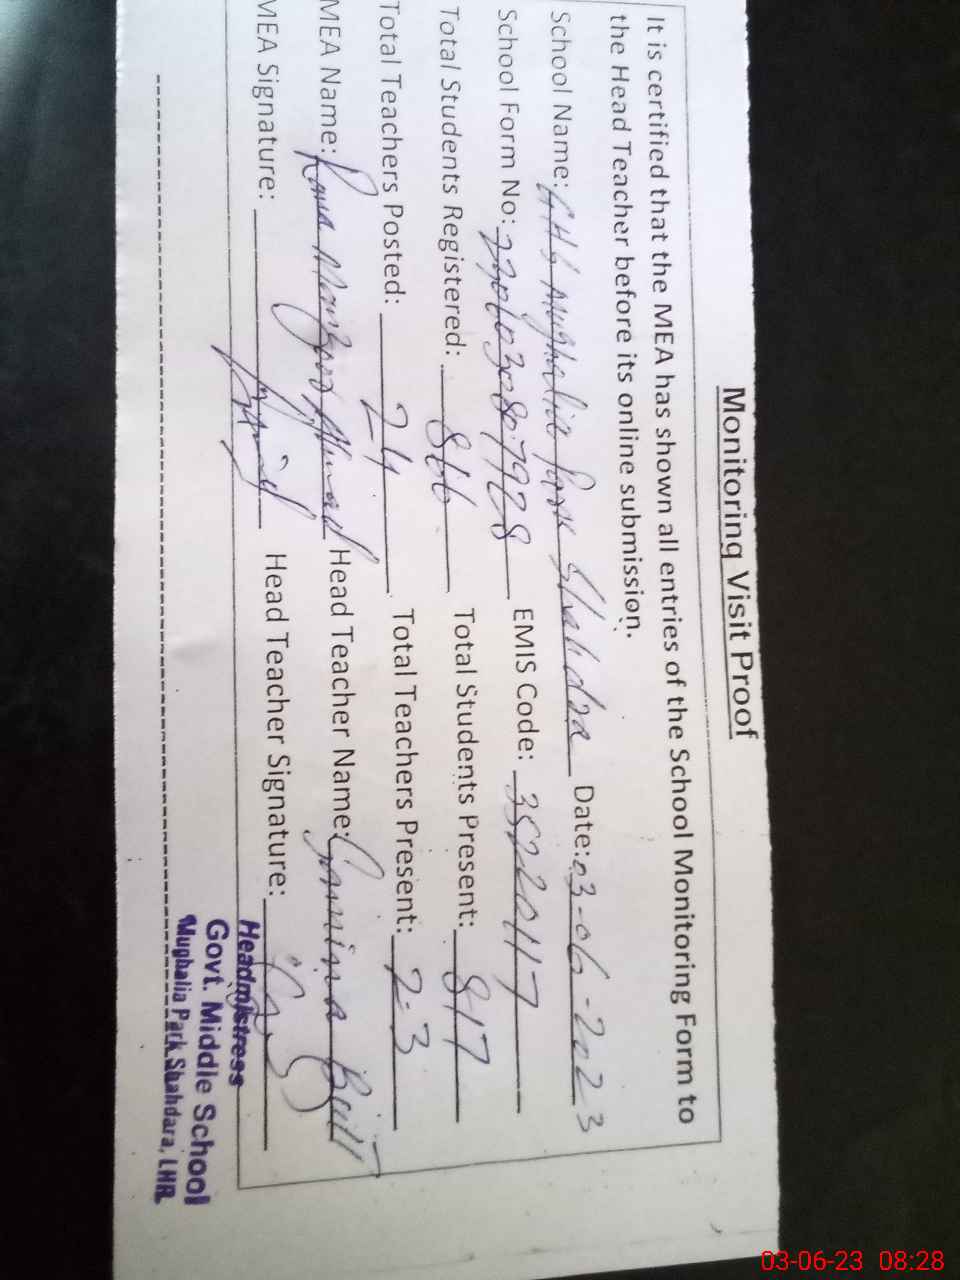 Monitoring Visit Proof
It is certified that the MEA has shown all entries of the School Monitoring Form to
the Head Teacher before its online submission.
School Name: GHS Mughalia Park Shahdra Date: 03-06-2023
School Form No: EMIS Code: 35220117
Total Students Registered: 866 Total Students Present: 817
Total Teachers Posted: 24 Total Teachers Present: 23
MEA Name: Rana Manzoor Ahmad Head Teacher Name: Butt
MEA Signature: Head Teacher Signature:
Headmistress
Govt. Middle School
Mughalia Park Shahdara, LHR.
03-06-23 08:28